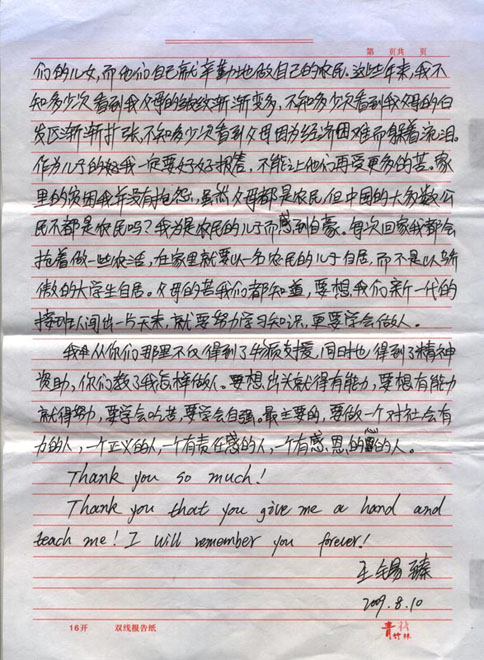 第 页共 页
们的儿女,而他们自己就辛勤地做自己的农民。这些年来,我不
知多少次看到我父母的皱纹渐渐变多,不知多少次看到我父母的白
发区渐渐扩张,不知多少次看到父母因为经济困难而躲着流泪。
作为儿子的我一定要好好报答,不能让他们再受更多的苦。家
里的贫困我并没有抱怨,虽然父母都是农民,但中国的大多数公
民不都是农民吗?我为是农民的儿子而感到自豪。每次回家我都会
抢着做一些农活,在家里就要以一名农民的儿子自居,而不是以骄
傲的大学生自居。父母的苦我们都知道,要想我们新一代的
接班人闯出一片天来,就要努力学习知识,更要学会做人。
我从你们那里不仅得到了物质支援,同时也得到了精神
资助,你们教了我怎样做人。要想出头就得有能力,要想有能力
就得努力,要学会吃苦,要学会自强。最主要的,要做一个对社会有
力的人,一个正义的人,一个有责任感的人,一个有感恩的人。
Thank you so much!
Thank you that you give me a hand and
teach me! I will remember you forever!
王锡臻
2009.8.10
16开 双线报告纸 青竹林